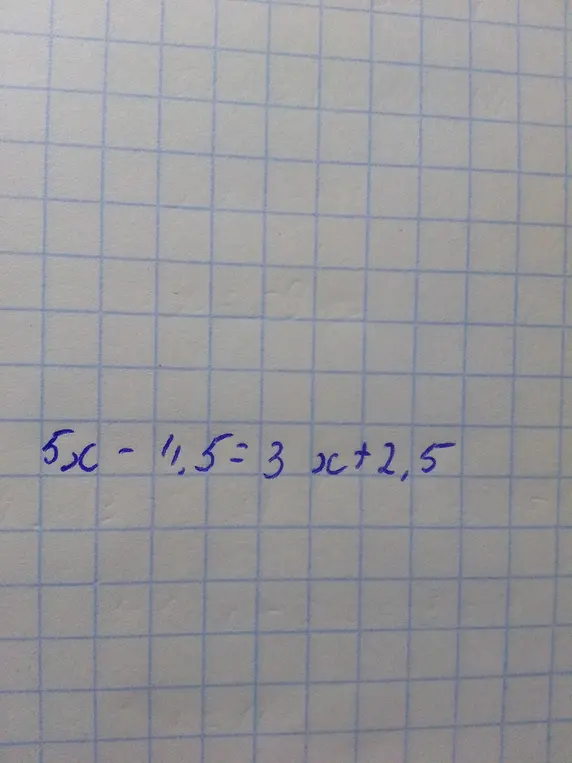 5x - 11,5 = 3 x + 2,5